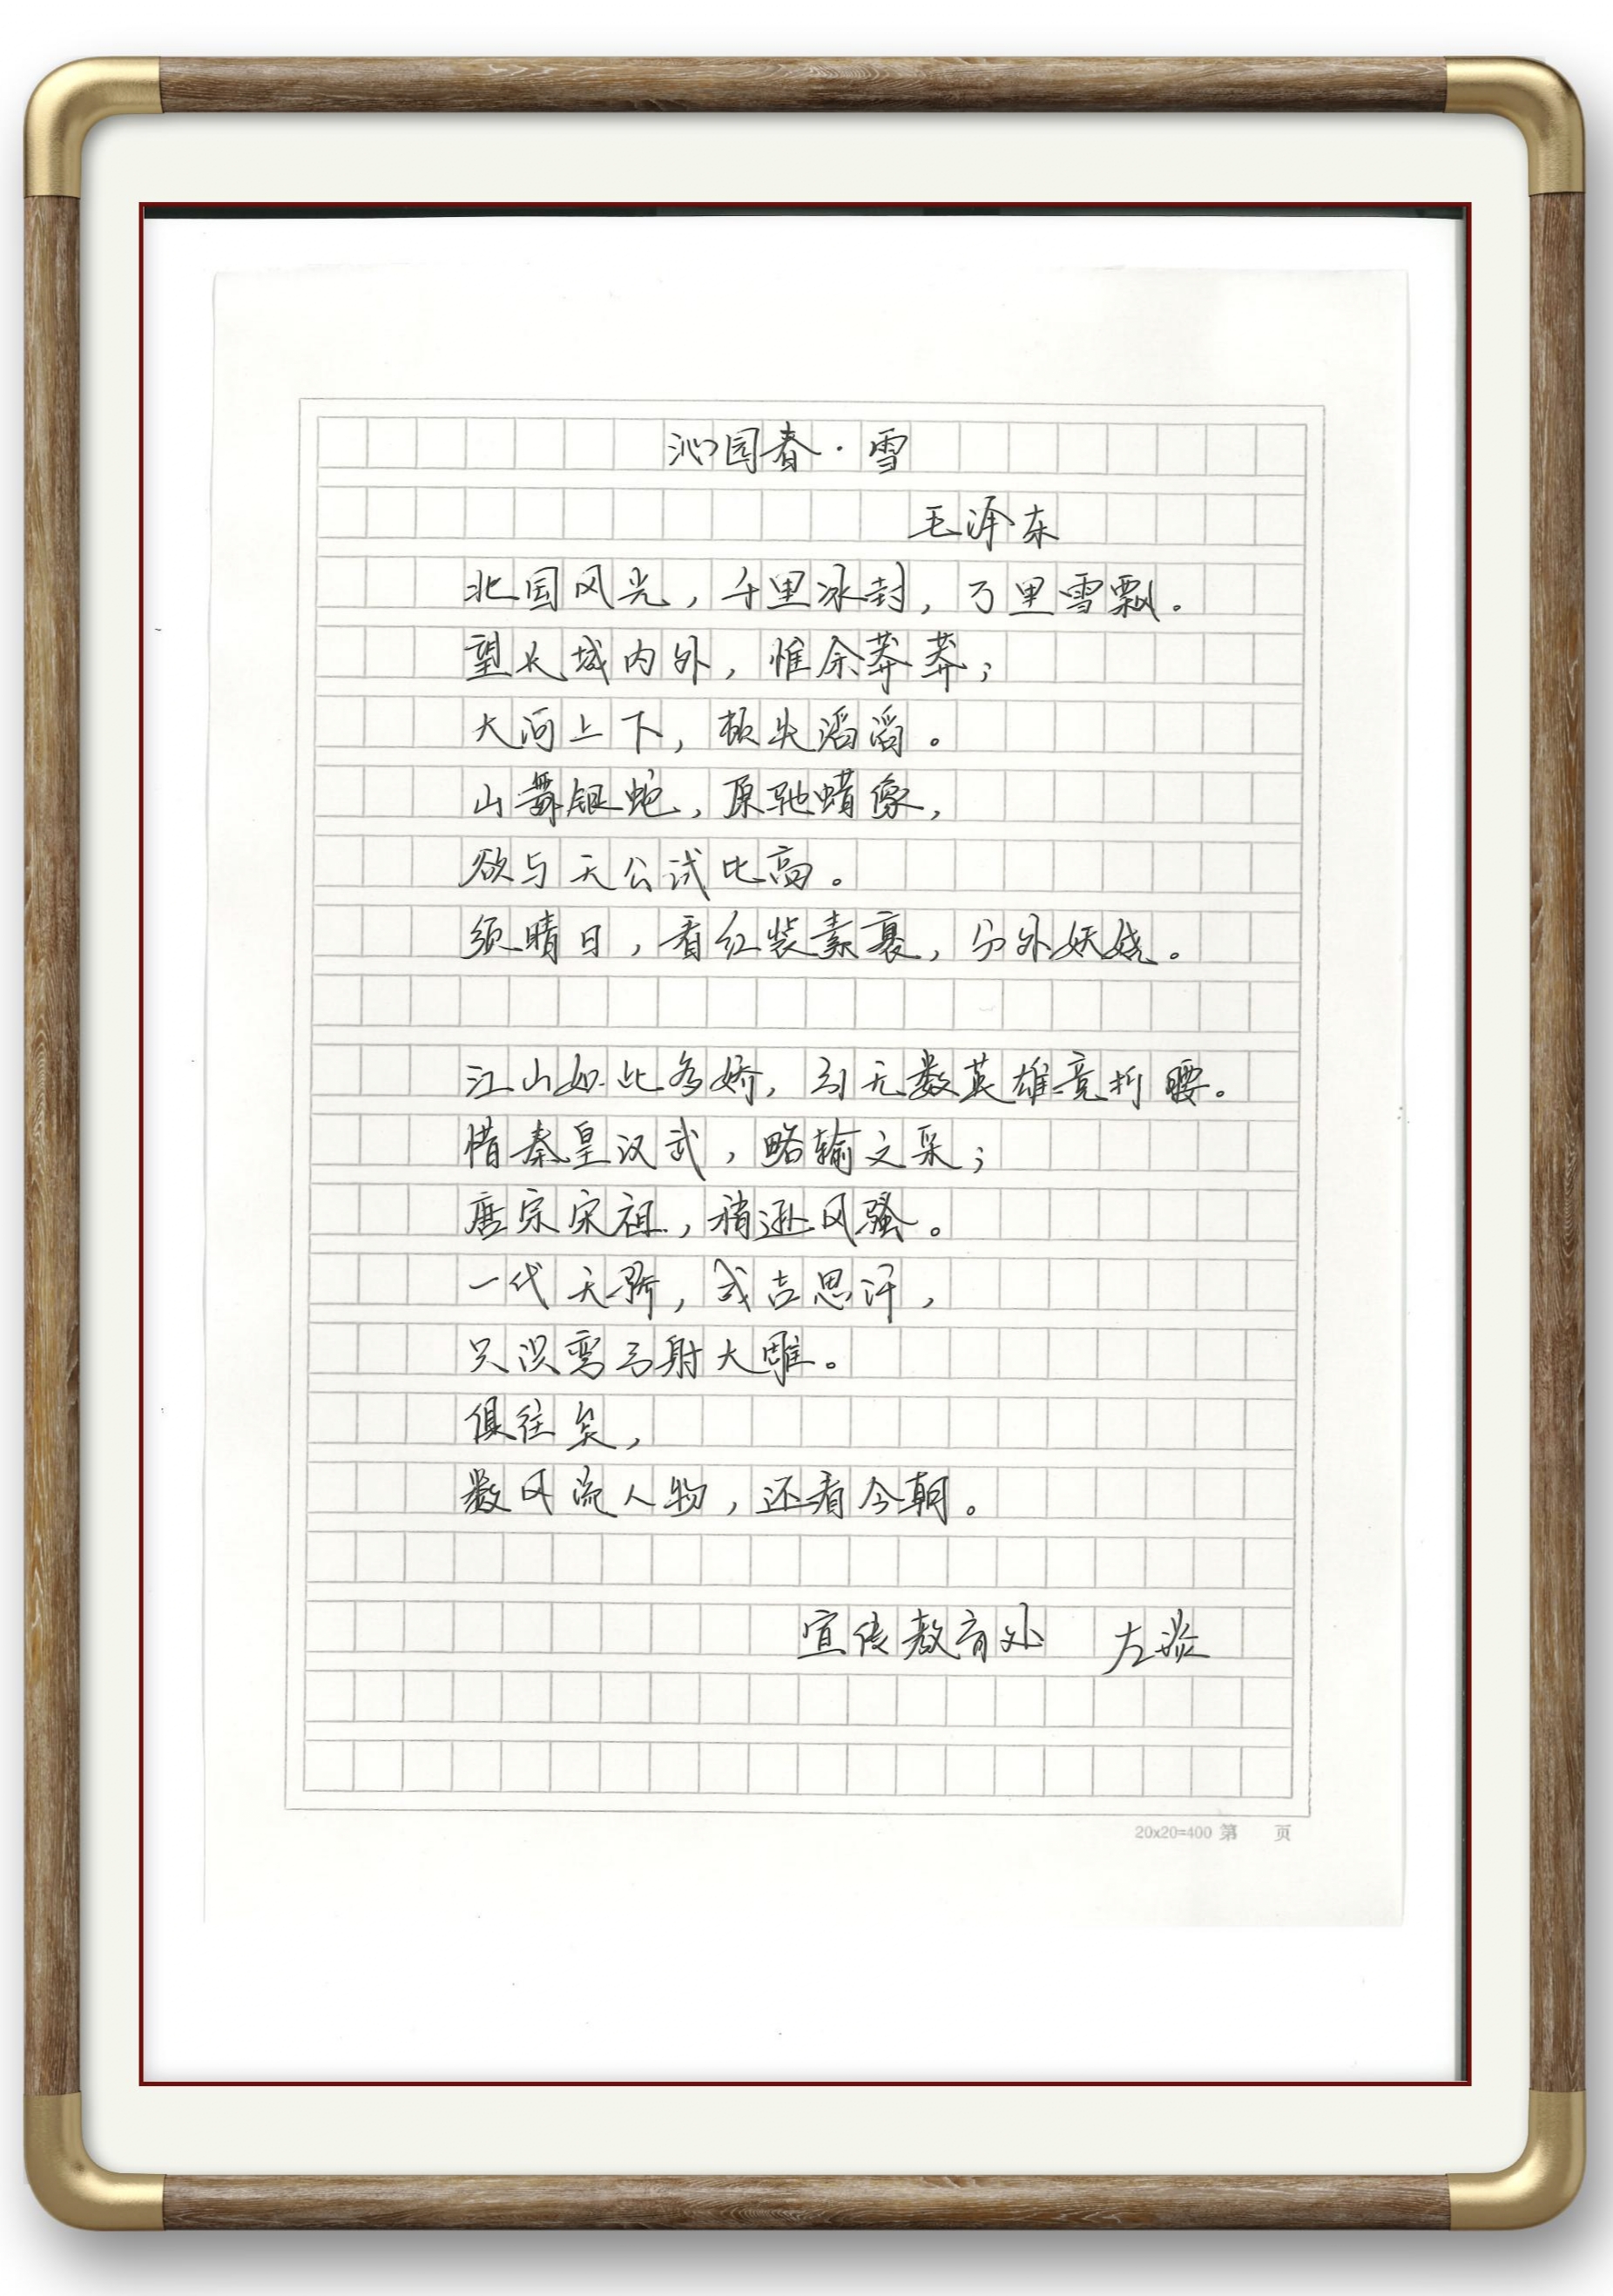 沁园春·雪
毛泽东
北国风光，千里冰封，万里雪飘。
望长城内外，惟余莽莽；
大河上下，顿失滔滔。
山舞银蛇，原驰蜡像，
欲与天公试比高。
须晴日，看红装素裹，分外妖娆。
江山如此多娇，引无数英雄竞折腰。
惜秦皇汉武，略输文采；
唐宗宋祖，稍逊风骚。
一代天骄，成吉思汗，
只识弯弓射大雕。
俱往矣，
数风流人物，还看今朝。
宣传教育处 左
20x20=400 第 页